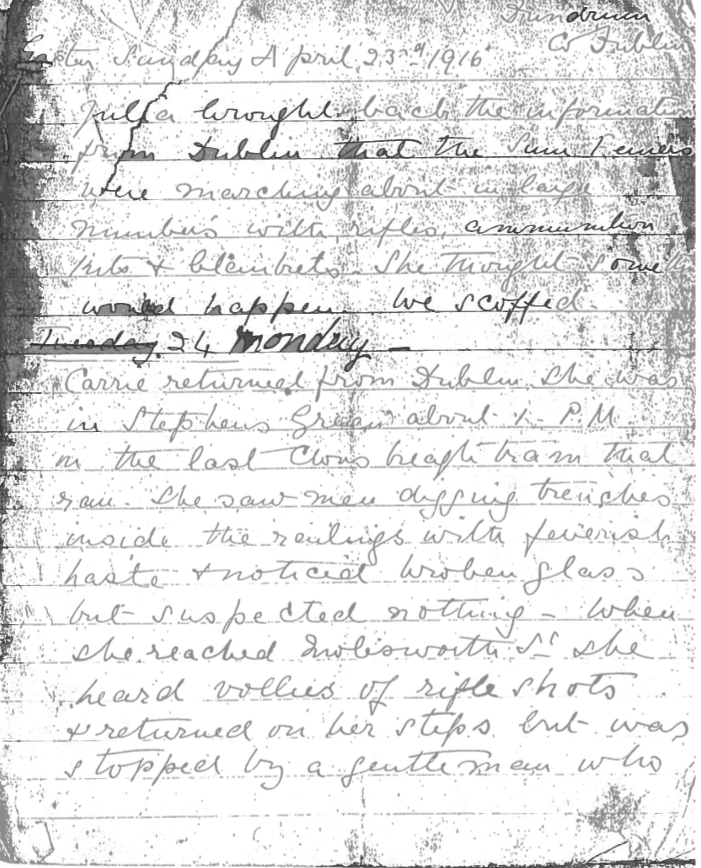 Dundrum
Co Dublin
Easter Sunday April 23rd 1916
Julia brought back the informat
from Dublin that the Sinn Feiners
were marching about in large
numbers with rifles, ammunition
kits & blankets. She thought some
would happen. We scoffed.
Tuesday 24 Monday –
Carrie returned from Dublin. She was
in Stephens Green about 1 – P.M.
in the last Clonskeagh tram that
ran. She saw men digging trenches
inside the railings with feverish
haste & noticed broken glass
but suspected nothing – When
she reached Molesworth St she
heard vollies of rifle shots
& returned on her steps but was
stopped by a gentleman who